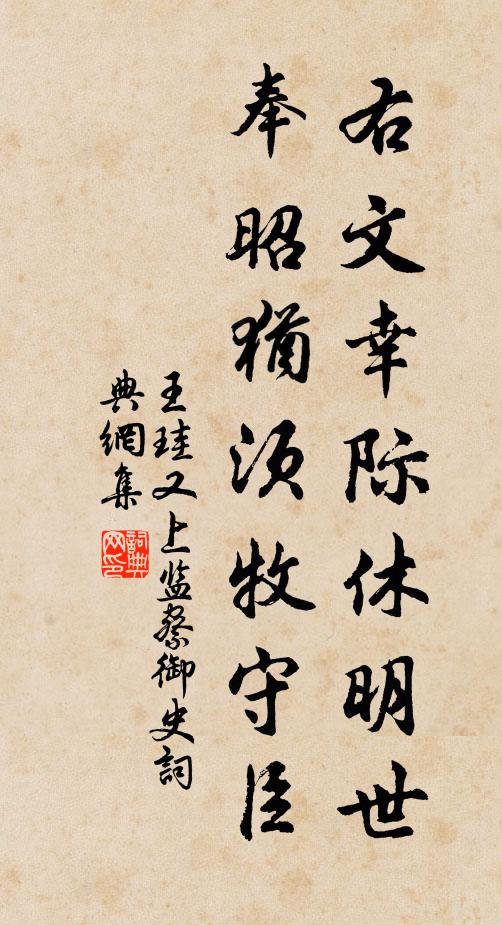 右文幸际休明世
奉昭犹须牧守臣
王珪又上监察御史词
典網集
詞典網印